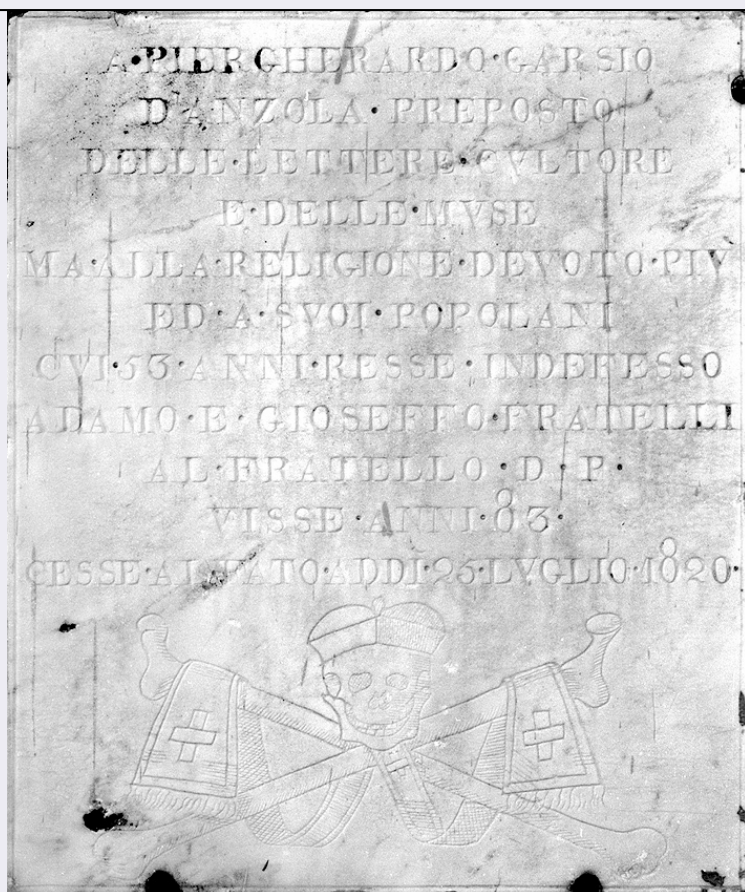 A·PIER GHERARDO·GARSIO
D'ANZOLA·PREPOSTO
DELLE·LETTERE·CVLTORE
E·DELLE·MVSE
MA·ALLA·RELIGIONE·DEVOTO·PIV
ED·A·SVOI·POPOLANI
CVI·53·ANNI·RESSE·INDEFESSO
ADAMO·E·GIOSEFFO·FRATELLI
AL·FRATELLO·D·P·
VISSE·ANNI·83·
CESSE·AL·FATO·ADDI·25·LVGLIO·1820·